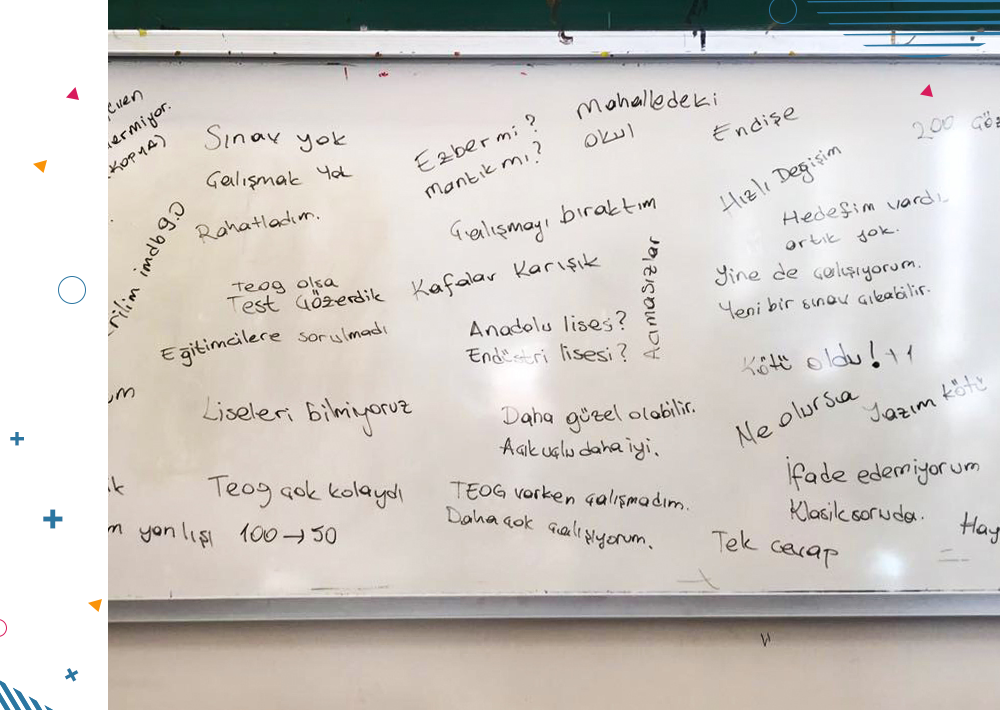 KOPYA)
imdb 9.0
Sınav yok
Çalışmak yok
Rahatladım.
TEOG olsa
Test Çözerdik
Eğitimcilere sorulmadı
Liseleri bilmiyoruz
Teog çok kolaydı
yanlışı 100→50
Ezber mi?
mantık mı?
Mahalledeki
okul
Çalışmayı bıraktım
Kafalar Karışık
Acımasızlar
Anadolu lises?
Endüstri lisesi?
Daha güzel olabilir.
Açık uçlu daha iyi.
TEOG varken çalışmadım.
Daha çok çalışıyorum.
Endişe
200
Hızlı Değişim
Hedefim vardı,
artık yok.
Yine de çalışıyorum.
Yeni bir sınav çıkabilir.
Kötü oldu! ++
Ne olursa
Yazım kötü
İfade edemiyorum
Klasik soruda.
Tek cevap